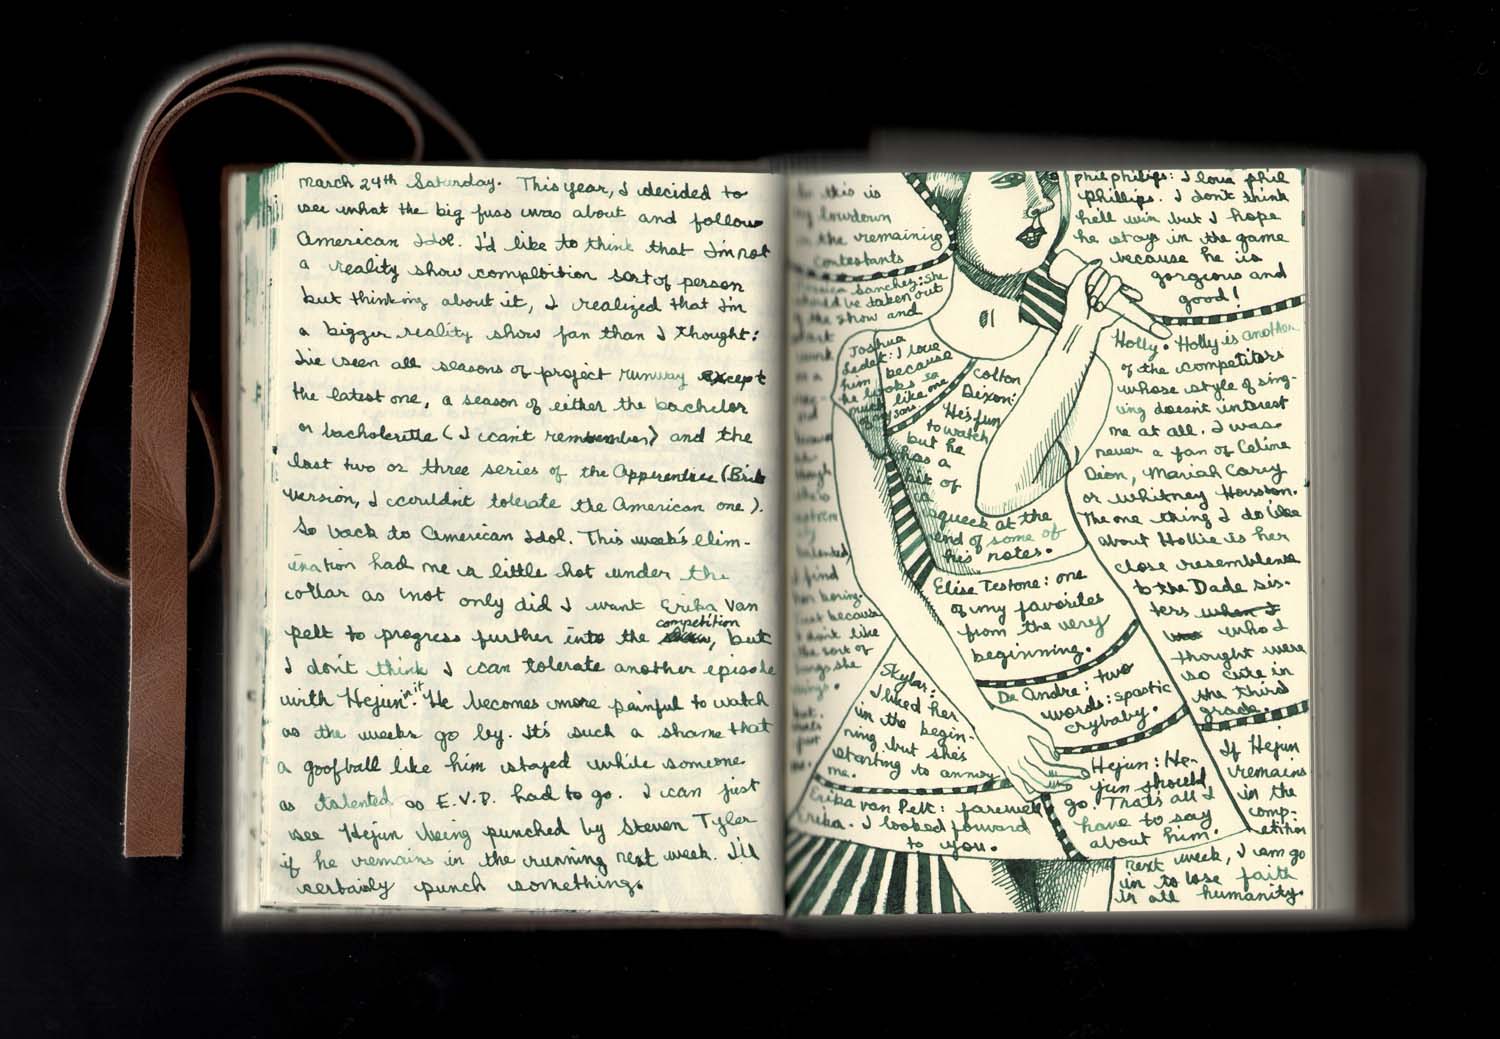 march 24th Saturday. This year, I decided to
see what the big fuss was about and follow
American Idol. I'd like to think that I'm not
a reality show competition sort of person
but thinking about it, I realized that I'm
a bigger reality show fan than I thought:
I've seen all seasons of project runway except
the latest one, a season of either the bachelor
or bacholerette (I can't remember) and the
last two or three series of the Apprentice (Brit
version, I couldn't tolerate the American one).
So back to American Idol. This week's elim-
ination had me a little hot under the
collar as not only did I want Erika Van
competition
pelt to progress further into the , but
I don't think I can tolerate another episode
with Hejun in it. He becomes more painful to watch
as the weeks go by. It's such a shame that
a goofball like him stayed while someone
as talented as E.V.P. had to go. I can just
see Hejun being punched by Steven Tyler
if he remains in the running next week. I'll
certainly punch something.
this is
my lowdown
on the remaining
contestants
Jessica Sanchez: She
should be taken out
of the show and
Joshua
Ledet: I love
him because
he looks so
much like one
of my sons.
Colton
Dixon:
He's fun
to watch
but he
has a
bit of
a
squeek at the
end of some of
his notes.
Elise Testone: one
of my favorites
from the very
beginning.
De Andre: two
words: spastic
crybaby.
Skylar:
I liked her
in the begin-
ning but she's
starting to annoy
me.
Erika van Pelt: farewell
Erika. I looked forward
to you.
Hejun: He-
jun should
go. That's all I
have to say
about him.
phil philips: I love phil
phillips. I don't think
he'll win but I hope
he stays in the game
because he is
gorgeous and
good!
Holly. Holly is another
of the competitors
whose style of sing-
ing doesn't interest
me at all. I was
never a fan of Celine
Dion, Mariah Carey
or Whitney Houston.
The one thing I do like
about Hollie is her
close resemblence
to the Dade sis-
ters when I
was who I
thought were
so cute in
the third
grade.
If Hejun
remains
in the
comp-
etition
next week, I am go
in to lose faith
in all humanity.